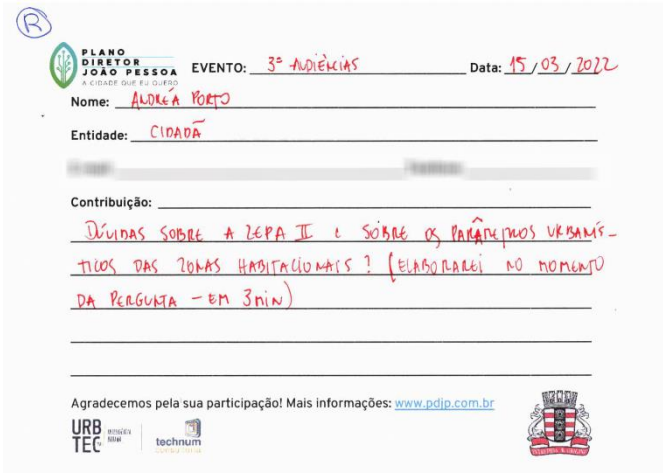 R
PLANO
DIRETOR
JOÃO PESSOA
A CIDADE QUE EU QUERO
EVENTO: 3ª AUDIÊNCIAS Data: 15/03/2022
Nome: ANDRÉA PORTO
Entidade: CIDADÃ
Contribuição:
DÚVIDAS SOBRE A ZEPA II E SOBRE OS PARÂMETROS URBANÍS-
TICOS DAS ZONAS HABITACIONAIS? (ELABORAREI NO MOMENTO
DA PERGUNTA - EM 3 min)
Agradecemos pela sua participação! Mais informações: www.pdjp.com.br
URB
TEC
technum